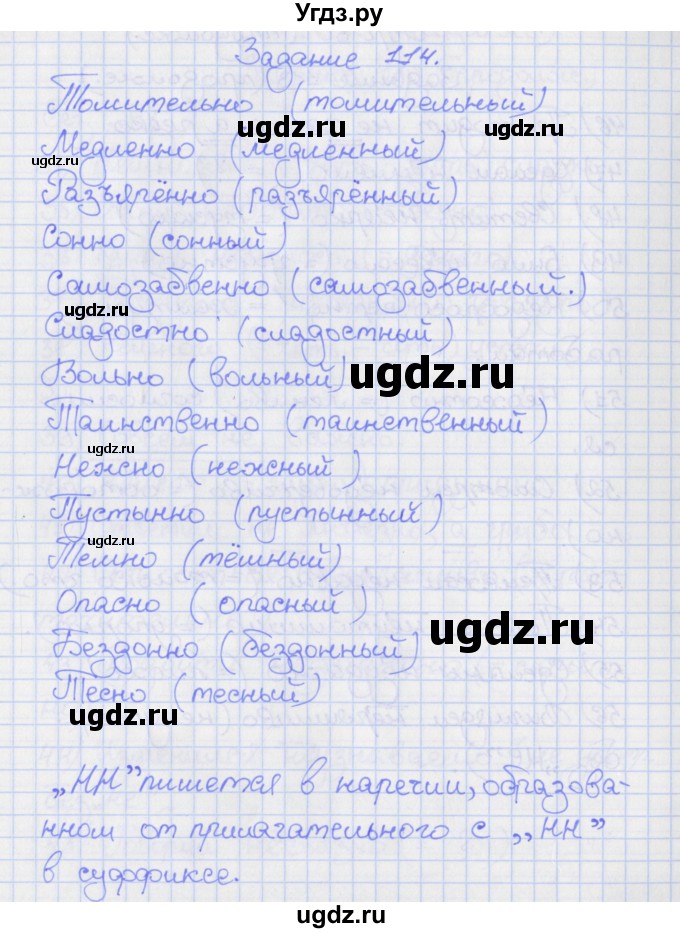 Угдз.ру
Задание 114.
Томительно (томительный)
ugdz.ru
ugdz.ru
Медленно (медленный)
ugdz.ru
Разъярённо (разъярённый)
Сонно (сонный)
Самозабвенно (самозабвенный.)
ugdz.ru
Сладостно (сладостный)
Вольно (вольный)
ugdz.ru
Таинственно (таинственный)
ugdz.ru
Нежно (нежный)
Пустынно (пустынный)
ugdz.ru
Темно (тёмный)
Опасно (опасный)
ugdz.ru
Бездонно (бездонный)
Тесно (тесный)
ugdz.ru
„НН” пишется в наречии, образова-
нном от прилагательного с „НН”
в суффиксе.
ugdz.ru